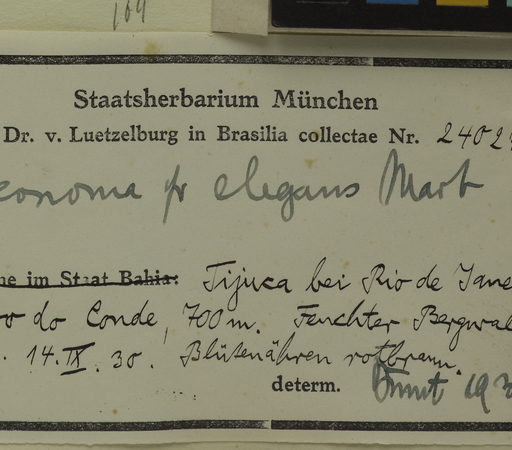 109
Staatsherbarium München
Dr. v. Luetzelburg in Brasilia collectae Nr. 2402
conoma fr elegans Mart
ne im Staat Bahia: Tijuca bei Rio de Jane
o do Conde, 700 m. Feuchter Bergwal
. 14.IX.30. Blütenähren rotbraun.
determ. Burret 193